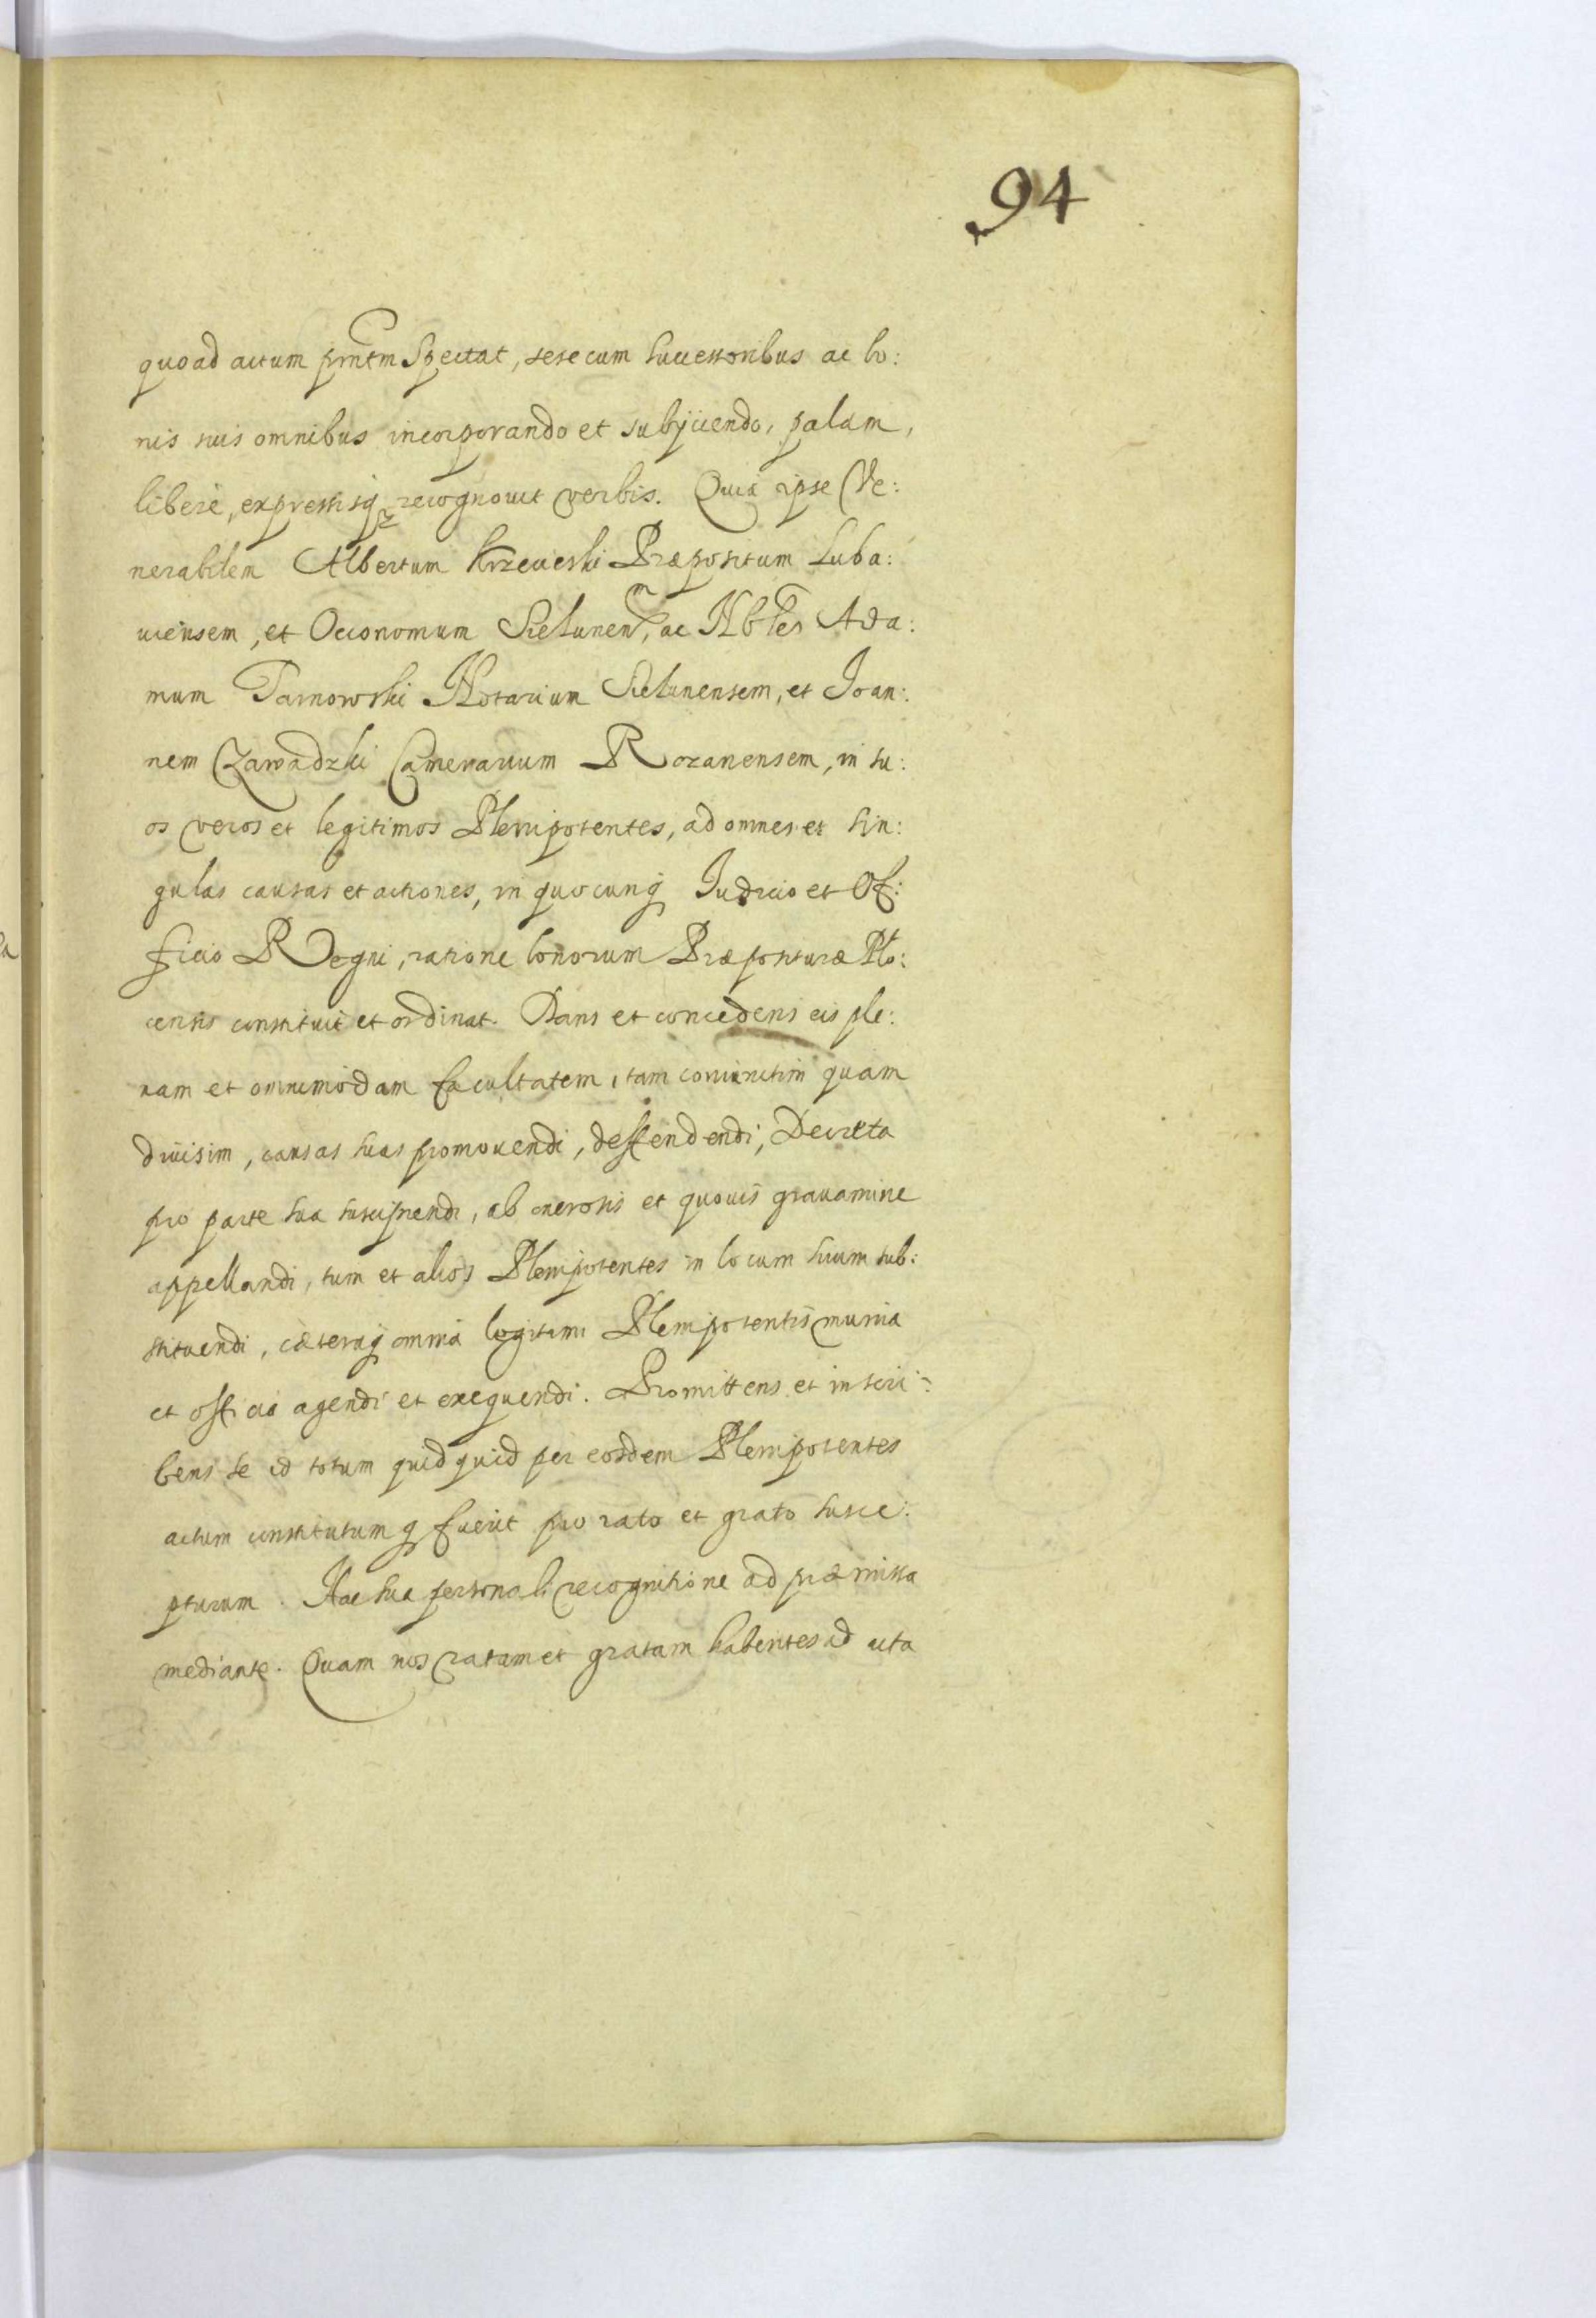 94
quoad actum pñtm Spectat, sese cum successoribus ac bo:
nis suis omnibus incorporando et subijciendo, palam,
liberè, expressisq recognovit verbis. Quia ipse Ve:
nerabilem Albertum Krzeweski Præpositum Luba:
uiensem, et Oeconomum Sielunen͠m, ac Nbles Ada:
mum Tarnowski Notarium Sielunensem, et Joan:
nem Zawadzki Camerarium Rozanensem, in su:
os veros et legitimos Plenipotentes, ad omnes et sin:
gulas causas et actiones, in quocunq́ Judicio et Of:
ficio Regni, ratione bonorum Præposituræ Plo:
censis constituit et ordinat. Dans et concedens eis ple:
nam et omnimodam facultatem, tam coniunctim quam
diuisim, causas suas promouendi, deffendendi, Decreta
pro parte sua suscipiendi, ab onerosis et quouis grauamine
appellandi, tum et alios Plenipotentes in locum suum sub:
stituendi, cæteraq́ omnia legitimi Plenipotentis munia
et officia agendi et exequendi. Promittens et inscri:
bens se id totum quidquid per eosdem Plenipotentes
actum constitutumq fuerit pro rato et grato susce:
pturum. Hac sua personali recognitione ad præmissa
mediante. Quam nos ratam et gratam habentes ad acta